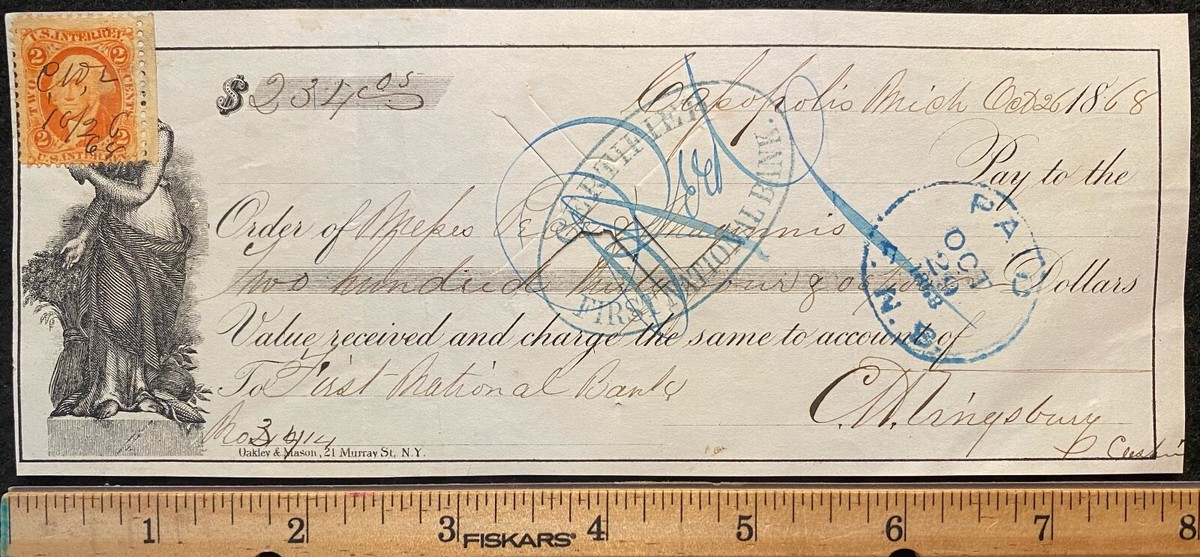 U.S. INTER. REV.
2 2
TWO CENTS
2 2
U.S. INTER. REV.
10/26
68
$ 234 05
Casopolis Mich Oct 26 1868
Pay to the
Order of Messrs &
Two hundred thirty four & Dollars
Value received and charge the same to account of
To First National Bank
C.W. Kingsbury
No.
Oakley & Mason, 21 Murray St. N.Y.
FIRST NATIONAL BANK.
PAID
OCT
29
1868
F. N. B.
1 2 3 4 5 6 7 8
FISKARS®